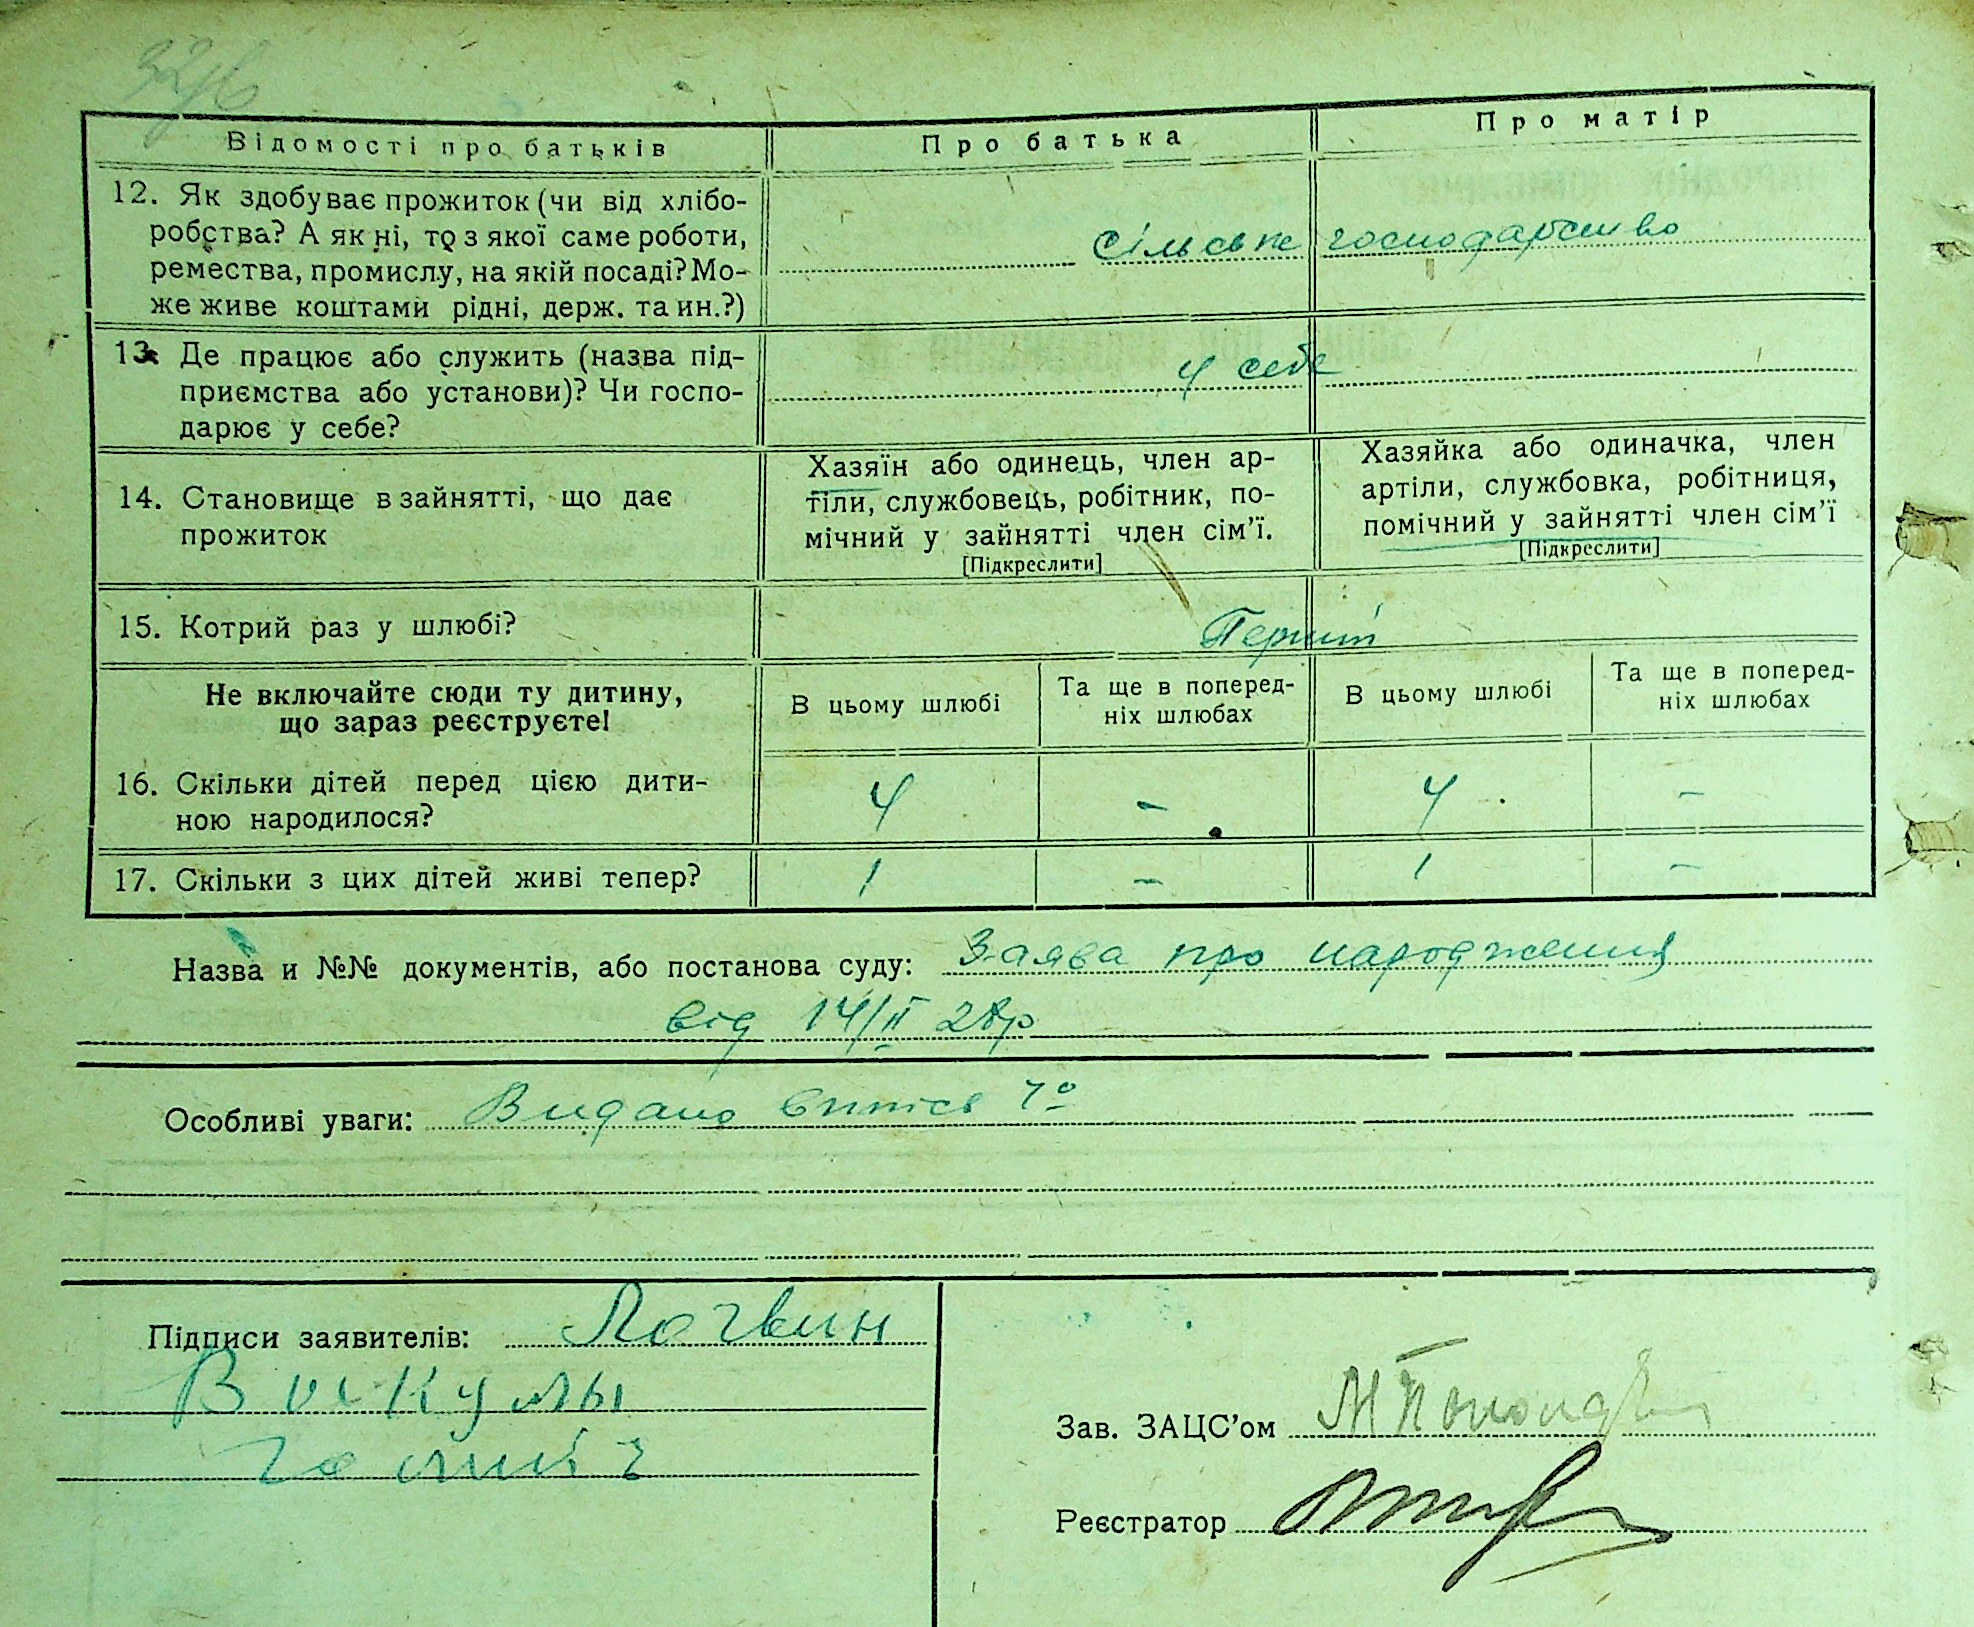 3246
Відомості про батьків
Про батька
Про матір
12. Як здобуває прожиток (чи від хлібо-
робства? А як ні, то з якої саме роботи,
ремества, промислу, на якій посаді? Мо-
же живе коштами рідні, держ. та ин.?)
Сільське господарство
13. Де працює або служить (назва під-
приємства або установи)? Чи госпо-
дарює у себе?
У себе
14. Становище в зайнятті, що дає
прожиток
Хазяїн або одинець, член ар-
тіли, службовець, робітник, по-
мічний у зайнятті член сім'ї.
[Підкреслити]
Хазяйка або одиначка, член
артіли, службовка, робітниця,
помічний у зайнятті член сім'ї
[Підкреслити]
15. Котрий раз у шлюбі?
Перший
Не включайте сюди ту дитину,
що зараз реєструєте!
В цьому шлюбі
Та ще в поперед-
ніх шлюбах
В цьому шлюбі
Та ще в поперед-
ніх шлюбах
16. Скільки дітей перед цією дити-
ною народилося?
4 - 4 -
17. Скільки з цих дітей живі тепер?
1 - 1 -
Назва и №№ документів, або постанова суду: Заява про народження
від 14/II 28р
Особливі уваги: Видано випись
Підписи заявителів: Логвин
Зав. ЗАЦС'ом
Реєстратор